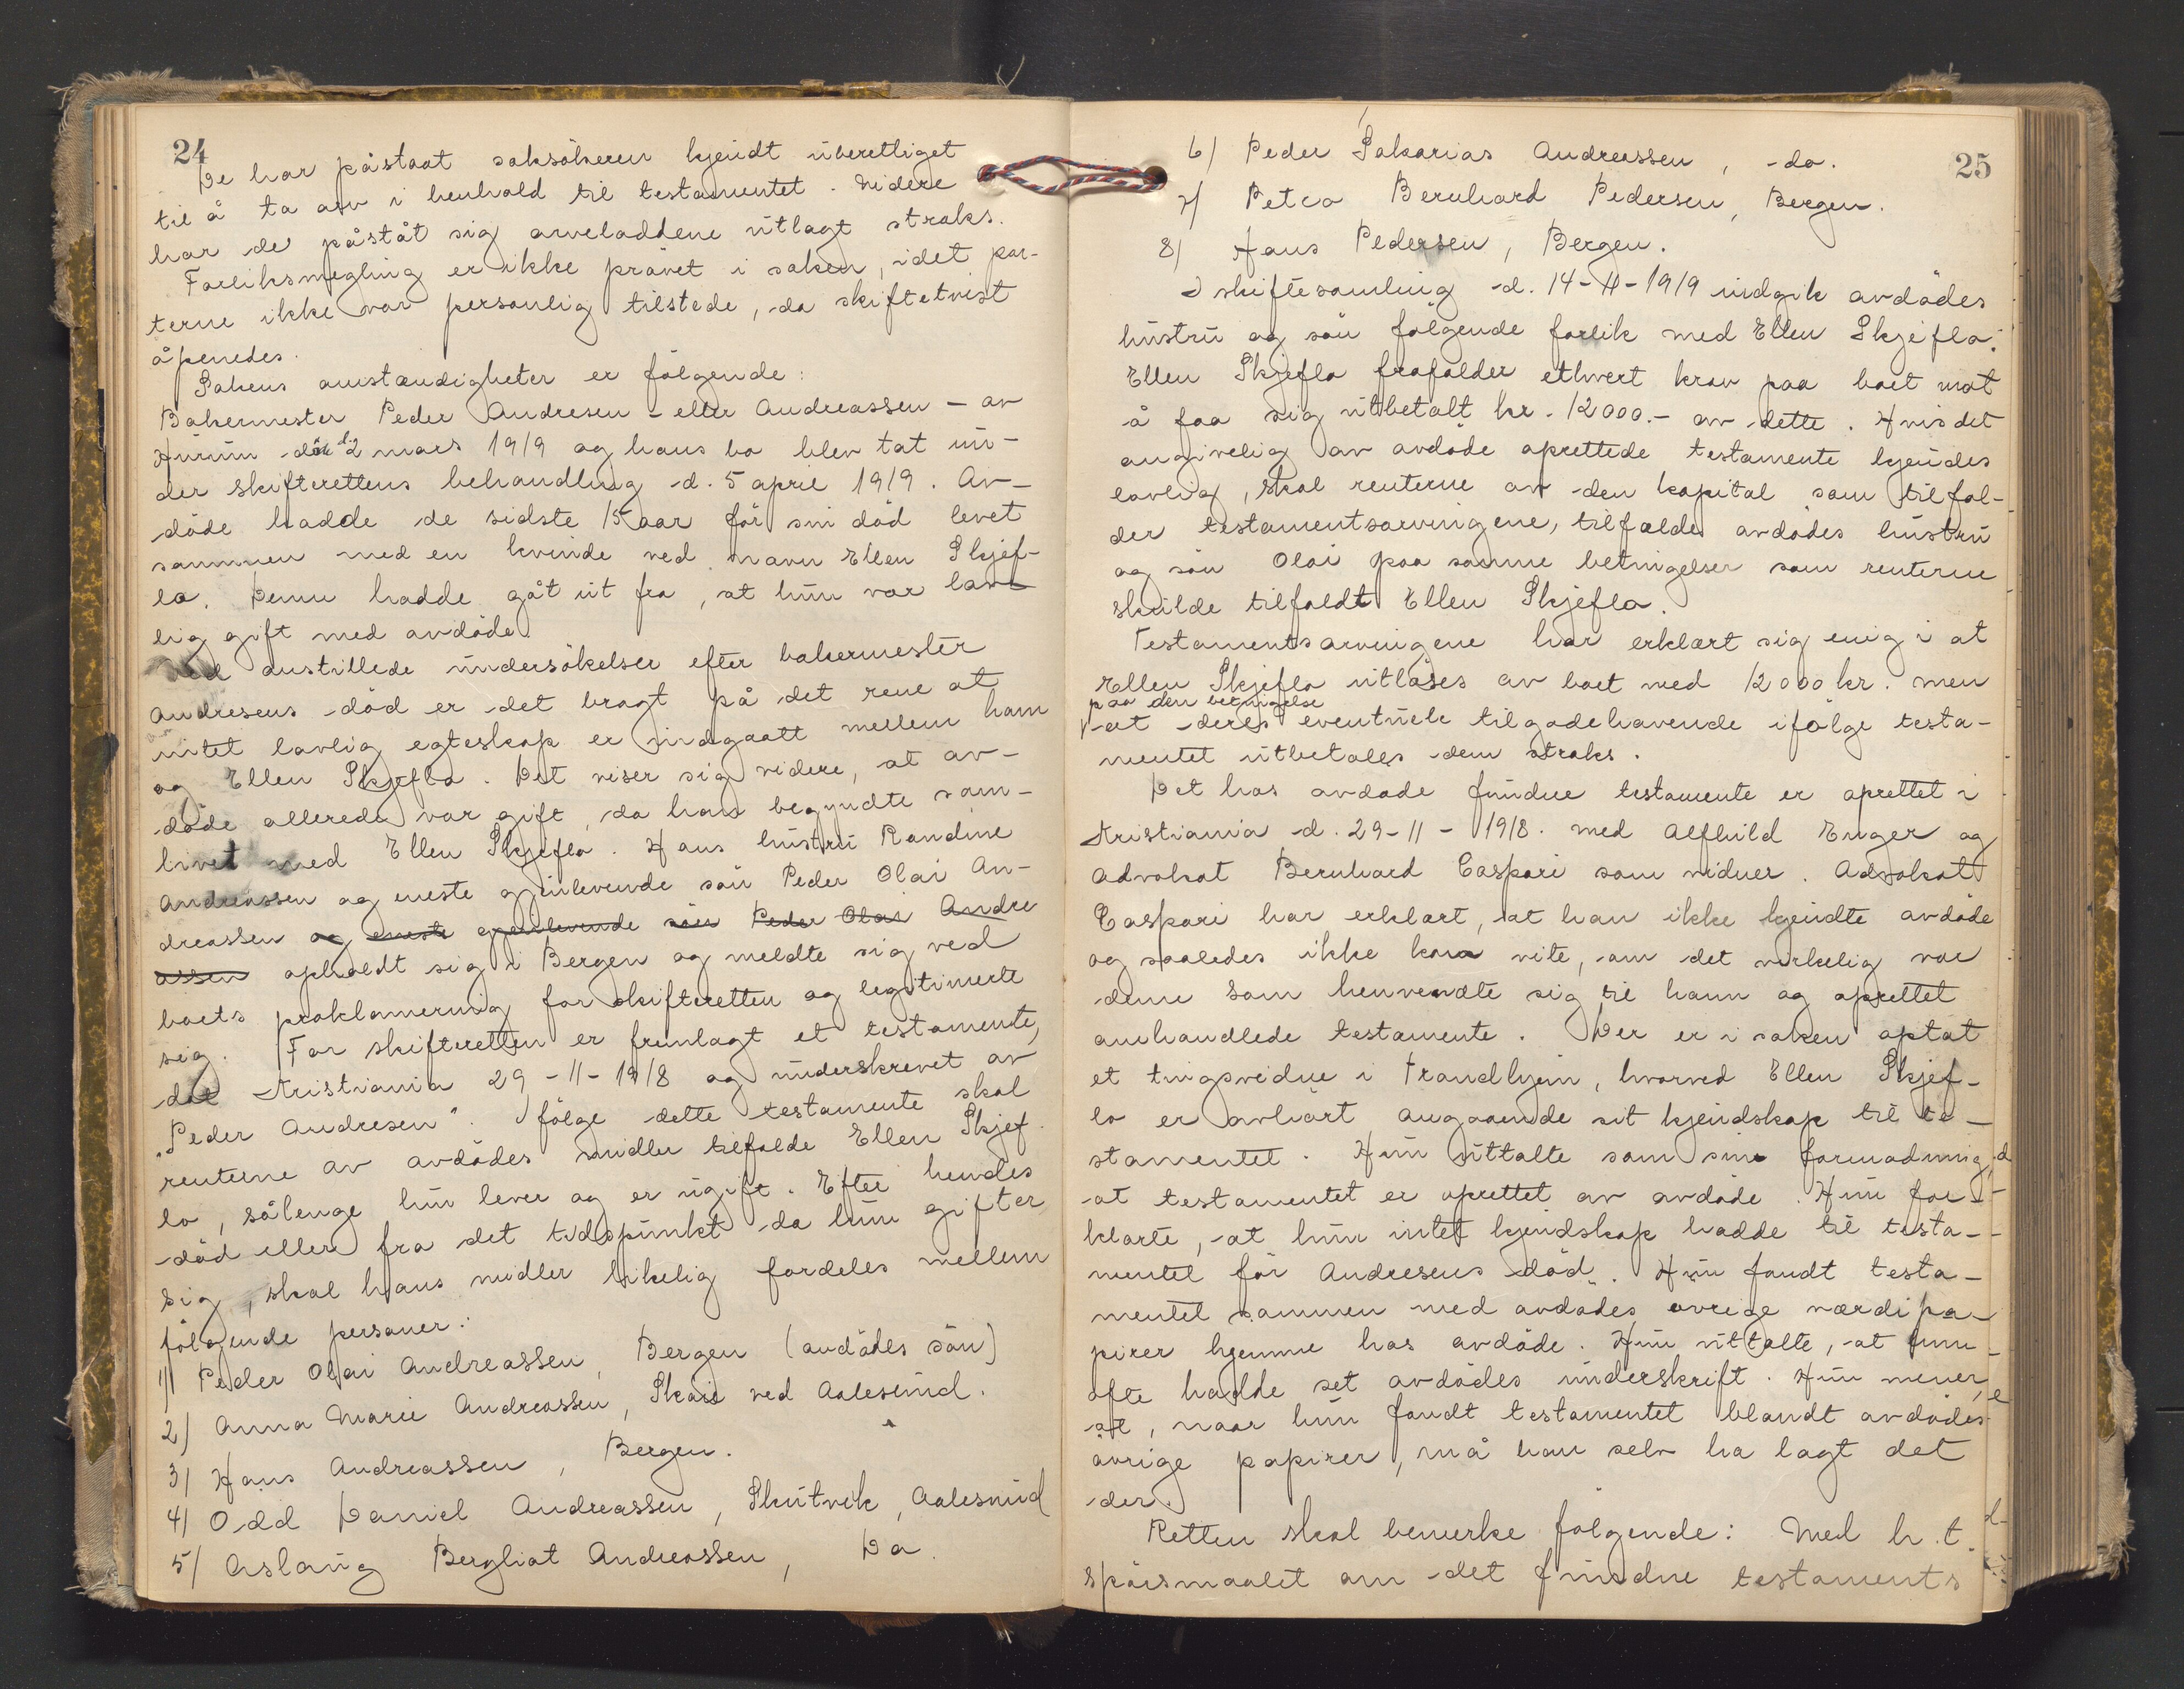 24
De har påstaat saksökeren kjendt uberettiget
til å ta arv i henhold til testamentet. Videre
har de påståt sig arveloddene utlagt straks.
Forliksmegling er ikke prövet i saken, idet par-
terne ikke var personlig tilstede, da skiftetvist
åpenedes.
Sakens omstændigheter er fölgende:
Bakermester Peder Andresen - eller Andreassen - av
Hurum döde d. 2 mars 1919 og hans bo blev tat un-
der skifterettens behandling d. 5 april 1919. Av-
döde hadde de sidste 15 aar för sin död levet
sammen med en kvinde ved navn Ellen Skjef-
lo. Denne hadde gåt ut fra, at hun var lov-
lig gift med avdöde.
Ved anstillede undersökelser efter bakermester
Andresens död er det bragt på det rene at
intet lovlig egteskap er indgaatt mellem ham
og Ellen Skjeflo. Det viser sig videre, at av-
döde allerede var gift, da han begyndte sam-
livet med Ellen Skjeflo. Hans hustru Randine
Andreassen og eneste gjenlevende sön Peder Olai An-
dreassen og eneste gjenlevende sön Peder Olai Andre
assen opholdt sig i Bergen og meldte sig ved
boets proklamering for skifteretten og legitimerte
sig. For skifteretten er fremlagt et testamente,
dat Kristiania 29-11-1918 og underskrevet av
"Peder Andresen". Ifölge dette testamente skal
renterne av avdödes midler tilfalde Ellen Skjef-
lo, sålenge hun lever og er ugift. Efter hendes
död eller fra det tidspunkt da hun gifter
sig, skal hans midler likelig fordeles mellem
fölgende personer:
1) Peder Olai Andreassen, Bergen (avdödes sön)
2) Anna Marie Andreassen, Skaue ved Aalesund.
3) Hans Andreassen, Bergen.
4) Odd Daniel Andreassen, Skutvik, Aalesund
5) Aslaug Bergliot Andreassen, Do.
25
6) Peder Sakarias Andreassen, do.
7) Petra Bernhard Pedersen, Bergen.
8) Hans Pedersen, Bergen.
I skiftesamling d. 14-11-1919 indgik avdödes
hustru og sön fölgende forlik med Ellen Skjeflo:
Ellen Skjeflo frafalder ethvert krav paa boet mot
å faa sig utbetalt kr. 12000.- av dette. Hvis det
angivelig av avdöde oprettede testamente kjendes
lovlig, skal renterne av den kapital som tilfal-
der testamentsarvingene, tilfalde avdödes hustru
og sön Olai paa samme betingelser som renterne
skulde tilfaldt Ellen Skjeflo.
Testamentsarvingene har erklært sig enig i at
Ellen Skjeflo utlöses av boet med 12000 kr. men
paa den betingelse
at deres eventuelle tilgodehavende ifölge testa-
mentet utbetales dem straks.
Det hos avdöde fundne testamente er oprettet i
Kristiania d. 29-11-1918. med Alfhild Enger og
Advokat Bernhard Caspari som vidner. Advokat
Caspari har erklært, at han ikke kjendte avdöde
og saaledes ikke kan vite, om det virkelig var
denne som henvendte sig til ham og oprettet
omhandlede testamente. Der er i saken optat
et tingsvidne i Trondhjem, hvorved Ellen Skjef-
lo er avhört angaaende sit kjendskap til te-
stamentet. Hun uttalte som sin formodning,
at testamentet er oprettet av avdöde. Hun for-
klarte, at hun intet kjendskap hadde til testa-
mentet för Andresens död. Hun fandt testa-
mentet sammen med avdödes övrige værdipa-
pirer hjemme hos avdöde. Hun uttalte, at hun
ofte hadde set avdödes underskrift. Hun mener,
at, naar hun fandt testamentet blandt avdödes
övrige papirer, må han selv ha lagt det
der.
Retten skal bemerke fölgende: Med h.t.
spörsmaalet om det fundne testaments